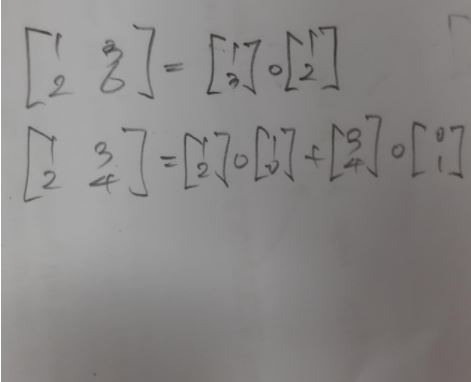 [1 3; 2 6] = [1; 3] ∘ [1; 2]
[1 3; 2 4] = [1; 2] ∘ [1; 0] + [3; 4] ∘ [0; 1]